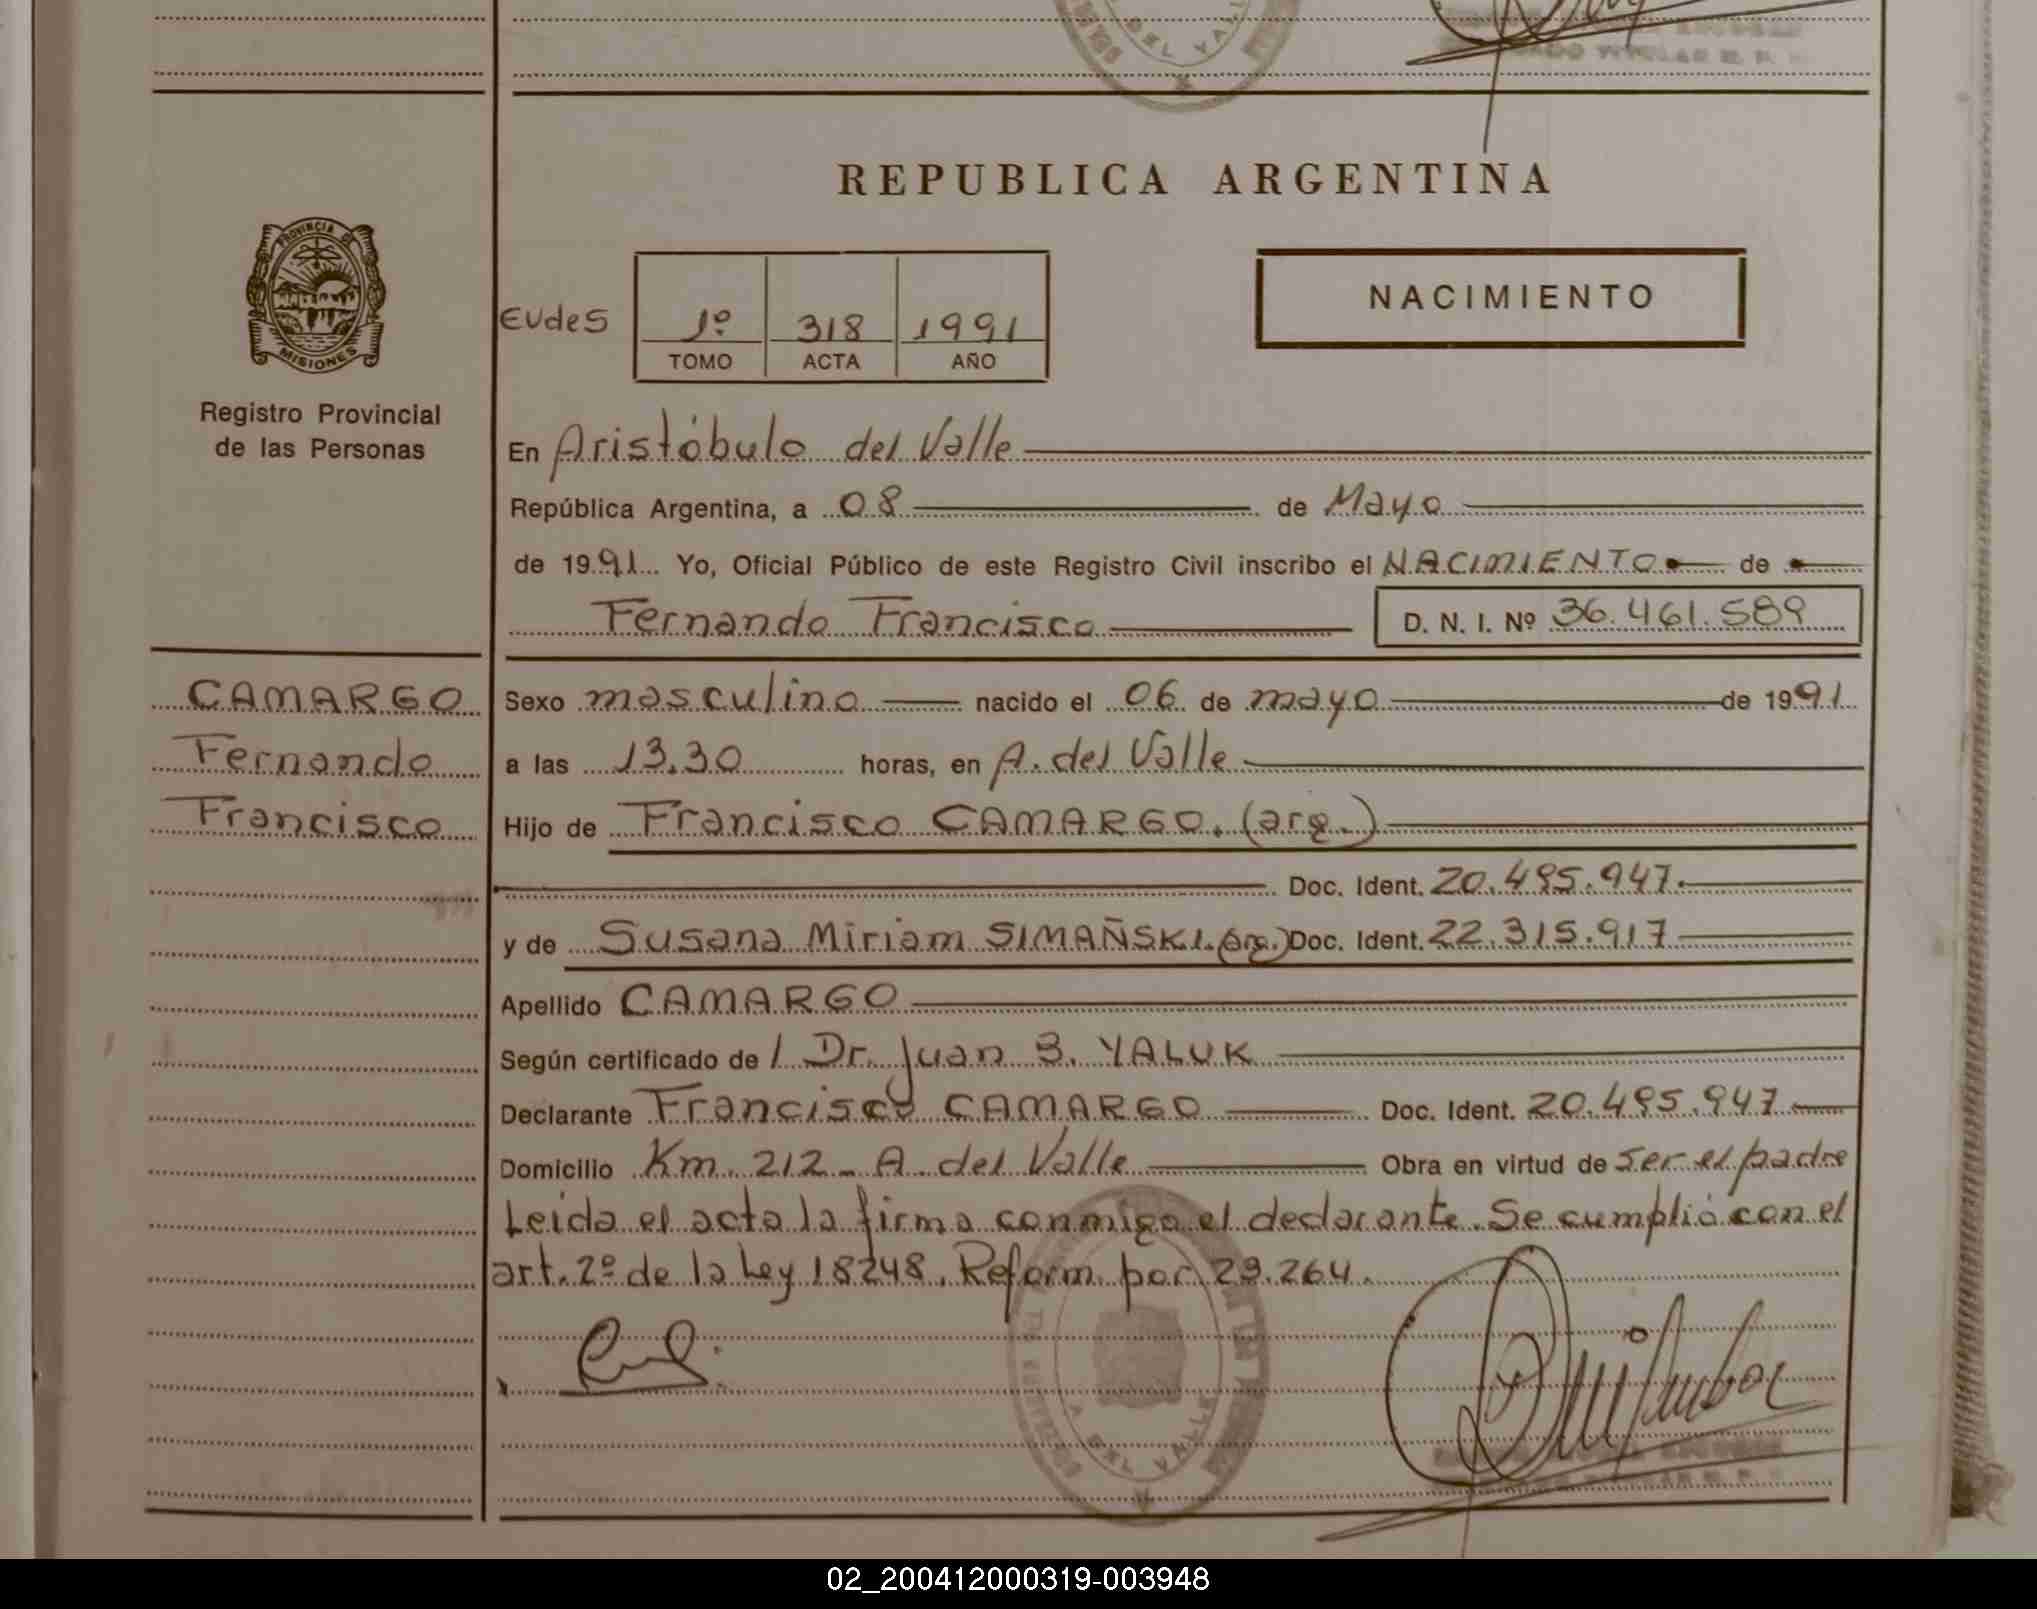 REPUBLICA ARGENTINA
PROVINCIA DE
MISIONES
Registro Provincial
de las Personas
EUdeS
1º 318 1991
TOMO ACTA AÑO
NACIMIENTO
En Aristóbulo del Valle
República Argentina, a 08 de Mayo
de 1991 Yo, Oficial Público de este Registro Civil inscribo el NACIMIENTO de
Fernando Francisco D. N. I. Nº 36.461.589
CAMARGO
Fernando
Francisco
Sexo masculino nacido el 06 de mayo de 1991
a las 13.30 horas, en A. del Valle
Hijo de Francisco CAMARGO. (arg.)
Doc. Ident. 20.495.947.
y de Susana Miriam SIMAÑSKI. (arg.) Doc. Ident. 22.315.917
Apellido CAMARGO
Según certificado de / Dr. Juan B. YALUK
Declarante Francisco CAMARGO Doc. Ident. 20.495.947
Domicilio Km. 212 - A. del Valle Obra en virtud de ser el padre
Leida el acta la firma conmigo el declarante. Se cumplió con el
art. 2º de la Ley 18248. Reform. por 23.264.
02_200412000319-003948